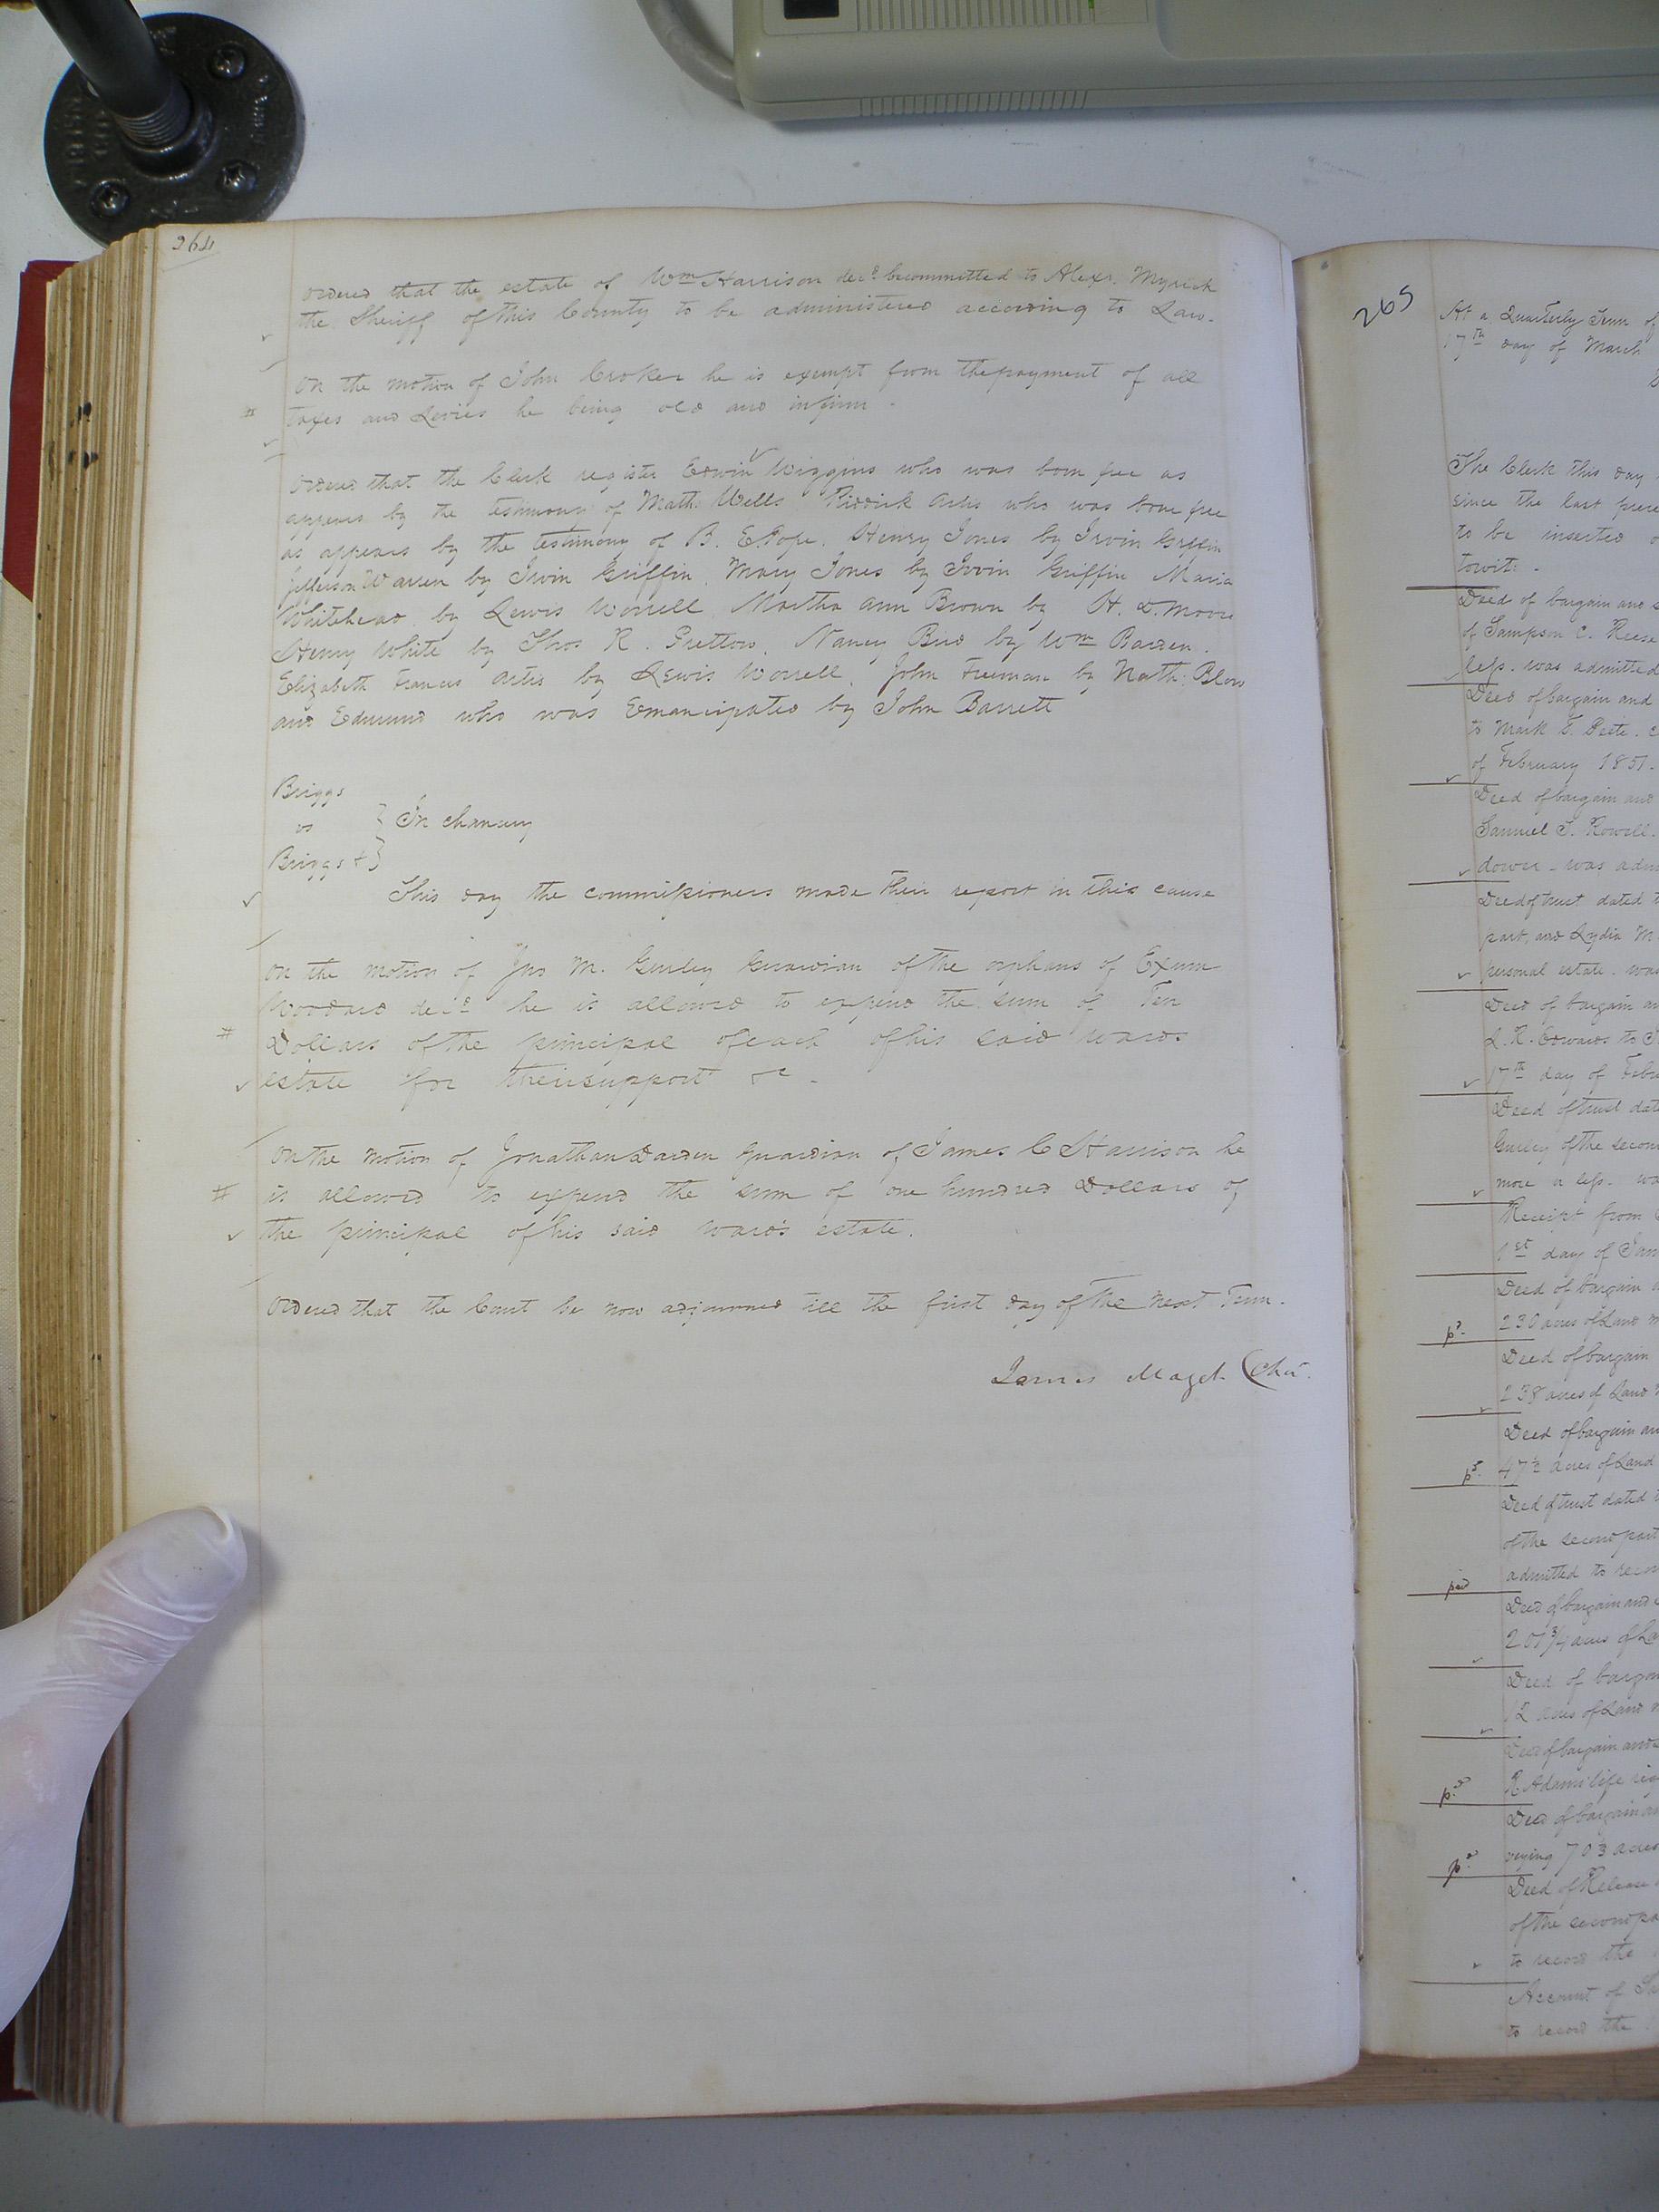 264
Ordered that the estate of Wm Harrison decd be committed to Alexr. Myrick
the Sheriff of this County to be administered according to Law.
On the motion of John Croker he is exempt from the payment of all
taxes and Levies he being old and infirm.
Ordered that the Clerk register Edwin Wiggins who was born free as
appears by the testimony of Math: Wells Riddick Artis who was born free
as appears by the testimony of B. E. Pope. Henry Jones by Irvin Griffin
Jefferson Warren by Irvin Griffin. Mary Jones by Irvin Griffin Maria
Whitehead by Lewis Worrell. Martha Ann Brown by H. D. Moore
Henry White by Thos R. Pretlow. Nancy Bird by Wm Barden.
Elizabeth Frances Artis by Lewis Worrell. John Freeman by Nath: Blow
and Edmund who was Emancipated by John Barrett
Briggs
vs } In chancery
Briggs +}
This day the commissioners made their report in this cause
On the motion of Jno M. Gurley Guardian of the orphans of Exum
Woodard decd he is allowed to expend the sum of Ten
# Dollars of the principal of each of his said wards
estate for their support &c.
On the motion of Jonathan Darden guardian of James C Harrison he
# is allowed to expend the sum of one hundred Dollars of
the principal of his said ward's estate.
Ordered that the Court be now adjourned till the first day of the next Term.
James Maget Chn.
265
At a Quarterly Term of
17th day of March
The Clerk this day
since the last
to be inserted
towit.
Deed of bargain and
of Sampson C. Reese
less. was admitted
Deed of bargain and
to Mark T. Peete.
of February 1851.
Deed of bargain and
Samuel J. Rowell.
dower - was
Deed of trust dated
part, and Lydia M
personal estate. was
Deed of bargain
L. R. Edwards to
17th day of
Deed of trust
Gurley of the
more or less.
Receipt from
1st day of
Deed of bargain
pd. 230 acres of Land
Deed of bargain
238 acres of Land
Deed of bargain
pd. 47½ acres of Land
Deed of trust dated
of the second part
paid admitted to
Deed of bargain and
201¾ acres of
Deed of
12 acres of Land
Deed of bargain and
pd. R Adams' life
Deed of bargain
pd.
Deed of Release
of the second
to record the
Account of
to record the